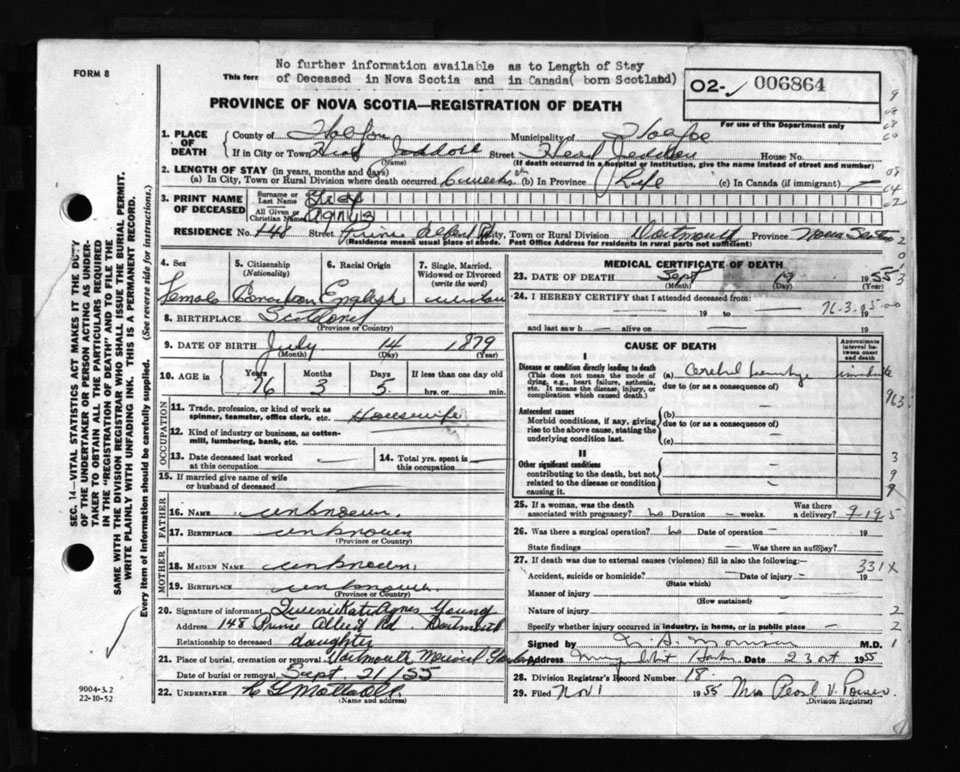 FORM 8
No further information available as to Length of Stay
This form of Deceased in Nova Scotia and in Canada( born Scotland)
02- 006864
For use of the Department only
PROVINCE OF NOVA SCOTIA—REGISTRATION OF DEATH
1. PLACE OF DEATH County of Municipality of
If in City or Town Head Street House No.
(Name) (If death occurred in a hospital or institution, give the name instead of street and number)
2. LENGTH OF STAY (in years, months and days)
(a) In City, Town or Rural Division where death occurred 6 weeks (b) In Province Life (c) In Canada (if immigrant) —
3. PRINT NAME OF DECEASED Surname or Last Name
All Given or Christian Names Agnes
RESIDENCE No. 148 Street Prince Albert Rd City, Town or Rural Division Dartmouth Province Nova Scotia
(Residence means usual place of abode. Post Office Address for residents in rural parts not sufficient)
4. Sex 5. Citizenship (Nationality) 6. Racial Origin 7. Single, Married, Widowed or Divorced (write the word)
Female Canadian English widow
8. BIRTHPLACE Scotland
(Province or Country)
9. DATE OF BIRTH July 14 1879
(Month) (Day) (Year)
10. AGE in Years Months Days If less than one day old
76 3 5 hrs. or min.
OCCUPATION
11. Trade, profession, or kind of work as spinner, teamster, office clerk, etc. Housewife
12. Kind of industry or business, as cotton-mill, lumbering, bank, etc. —
13. Date deceased last worked at this occupation — 14. Total yrs. spent in this occupation —
15. If married give name of wife or husband of deceased
FATHER
16. NAME unknown
17. BIRTHPLACE unknown
(Province or Country)
MOTHER
18. MAIDEN NAME unknown
19. BIRTHPLACE unknown
(Province or Country)
20. Signature of informant Queenie Kate Agnes Young
Address 148 Prince Albert Rd Dartmouth
Relationship to deceased daughter
21. Place of burial, cremation or removal Dartmouth Memorial Gardens
Date of burial or removal Sept. 21/55
22. UNDERTAKER
(Name and Address)
MEDICAL CERTIFICATE OF DEATH
23. DATE OF DEATH Sept 19 1955
(Month) (Day) (Year)
24. I HEREBY CERTIFY that I attended deceased from
— 19 to — 19
and last saw h alive on — 19
CAUSE OF DEATH
Approximate interval between onset and death
I
Disease or condition directly leading to death (a) Cerebral immediate
(This does not mean the mode of dying, e.g., heart failure, asthenia, etc. It means the disease, injury, or complication which caused death.) due to (or as a consequence of)
Antecedent causes (b)
Morbid conditions, if any, giving rise to the above cause, stating the underlying condition last. due to (or as a consequence of)
(c)
II
Other significant conditions contributing to the death, but not related to the disease or condition causing it.
25. If a woman, was the death associated with pregnancy? no Duration — weeks. Was there a delivery?
26. Was there a surgical operation? no Date of operation — 19
State findings — Was there an autopsy?
27. If death was due to external causes (violence) fill in also the following:—
331X
Accident, suicide or homicide? Date of injury — 19
(State which)
Manner of injury
(How sustained)
Nature of injury
Specify whether injury occurred in industry, in home, or in public place —
Signed by M.D.
Address Date 2 3 Oct 1955
28. Division Registrar's Record Number 18
29. Filed Nov 1 1955 Mrs Pearl V. Power
(Division Registrar)
SEC. 14—VITAL STATISTICS ACT MAKES IT THE DUTY OF THE UNDERTAKER OR PERSON ACTING AS UNDERTAKER TO OBTAIN ALL THE PARTICULARS REQUIRED IN THE "REGISTRATION OF DEATH" AND TO FILE THE SAME WITH THE DIVISION REGISTRAR WHO SHALL ISSUE THE BURIAL PERMIT.
WRITE PLAINLY WITH UNFADING INK. THIS IS A PERMANENT RECORD.
Every item of information should be carefully supplied. (See reverse side for instructions.)
9004-3.2
22-10-52